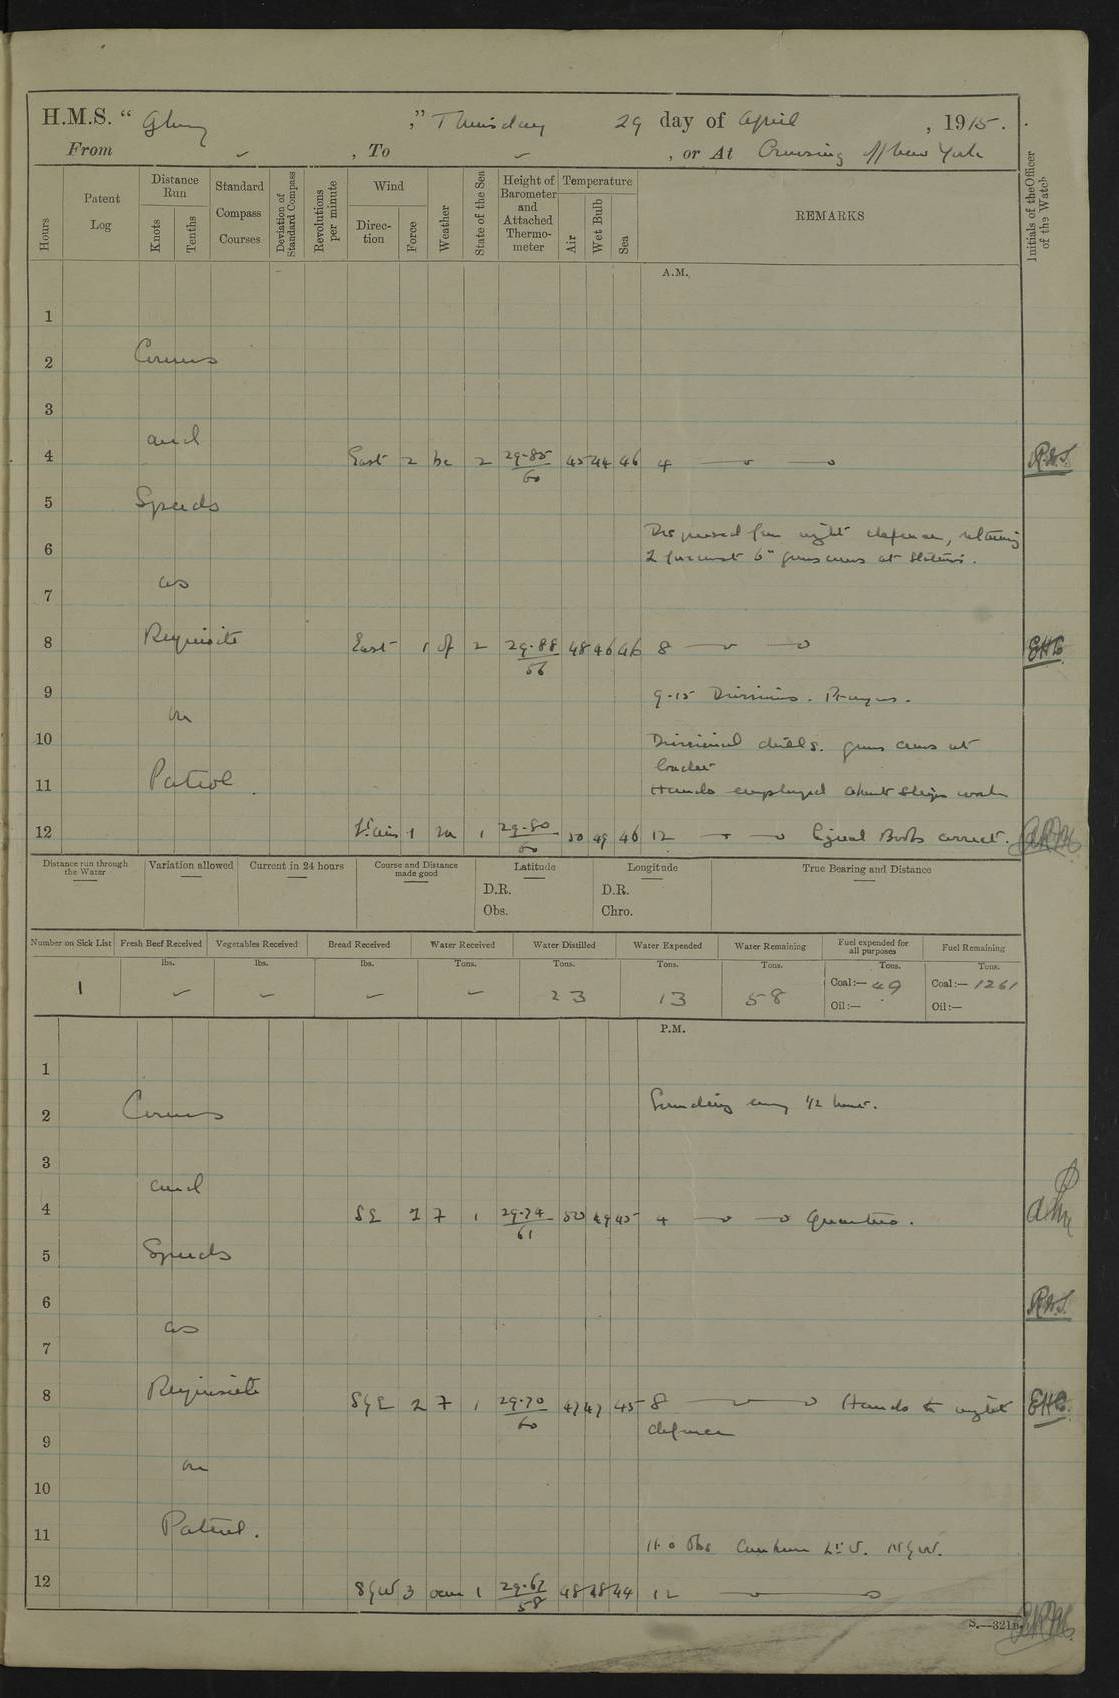 H.M.S. “ Glory ,” Thursday 29 day of April , 1915.
From , To , or At Cruising off New York
Hours
Patent Log
Distance Run
Knots
Tenths
Standard Compass Courses
Deviation of Standard Compass
Revolutions per minute
Wind
Direction
Force
Weather
State of the Sea
Height of Barometer and Attached Thermometer
Temperature
Air
Wet Bulb
Sea
REMARKS
Initials of the Officer of the Watch
A.M.
1
2 Courses
3
and
4 East 2 bc 2 29.85 45 44 46 4 R.W.S.
60
5 Speeds
Dispersed from night defence, retaining
6 2 foremost 6" guns crews at stations.
as
7
8 Requisite East 1 of 2 29.88 48 46 46 8
56
9 9.15 Divisions. Prayers.
on
10 Divisional drills. guns crews at
loader
11 Patrol. Hands employed about ships work
12 1 29.80 50 49 46 12 Signal Books correct.
60
Distance run through the Water
Variation allowed
Current in 24 hours
Course and Distance made good
Latitude
D.R.
Obs.
Longitude
D.R.
Chro.
True Bearing and Distance
Number on Sick List
Fresh Beef Received
Vegetables Received
Bread Received
Water Received
Water Distilled
Water Expended
Water Remaining
Fuel expended for all purposes
Fuel Remaining
lbs. lbs. lbs. Tons. Tons. Tons. Tons. Tons. Tons.
1 23 13 58 Coal:— 49 Coal:— 1261
Oil:— Oil:—
P.M.
1
2 Courses Sounding every 1/2 hour.
3
and
4 SE 2 7 1 29.74 50 49 45 4 Quarters.
61
5 Speeds
6 R.W.S.
as
7
8 Requisite SyE 2 7 1 29.70 47 47 45 8 Hands to night
60
defence
9
on
10
11 Patrol.
11.0 Obs L.V. NyW.
12 SyW 3 1 29.62 48 48 44 12
58
S.—321